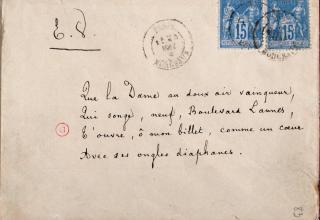 E. D.
15 15
Que la Dame au doux air vainqueur,
Qui songe, neuf, Boulevard Lannes,
T'ouvre, ô mon billet, comme un cœur
Avec ses ongles diaphanes.